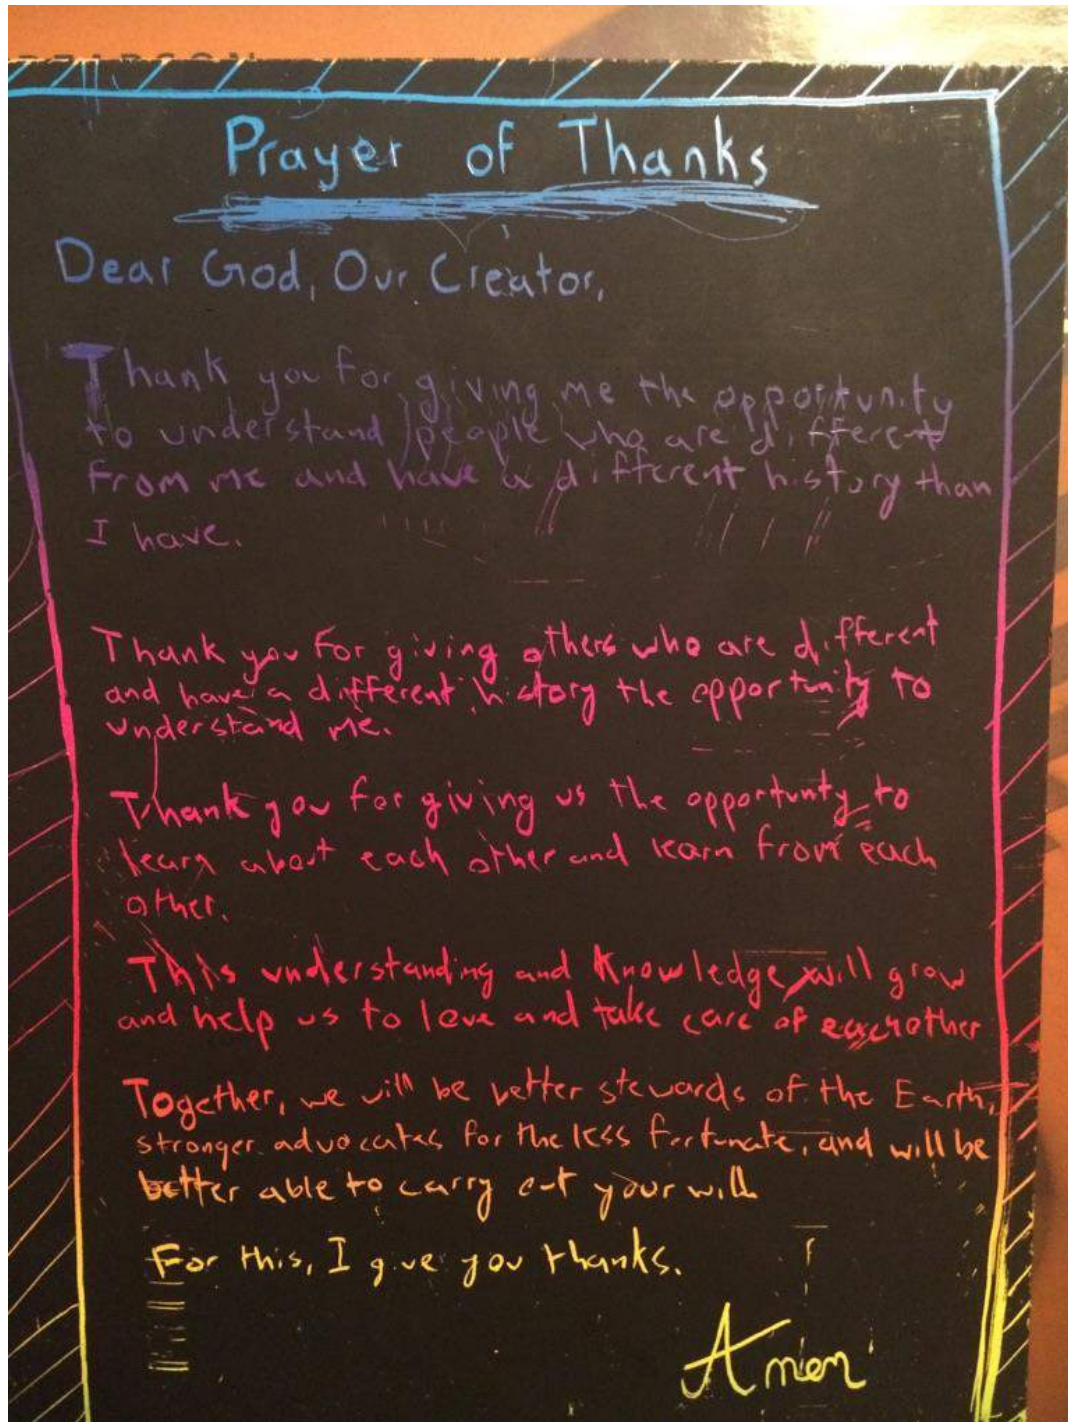 Prayer of Thanks
Dear God, Our Creator,
Thank you for giving me the opportunity
to understand people who are different
from me and have a different history than
I have.
Thank you for giving others who are different
and have a different history the opportunity to
understand me.
Thank you for giving us the opportunty to
learn about each other and learn from each
other.
This understanding and Knowledge will grow
and help us to love and take care of eachother
Together, we will be better stewards of the Earth,
stronger advocates for the less fortunate, and will be
better able to carry out your will
For this, I give you thanks.
Amen